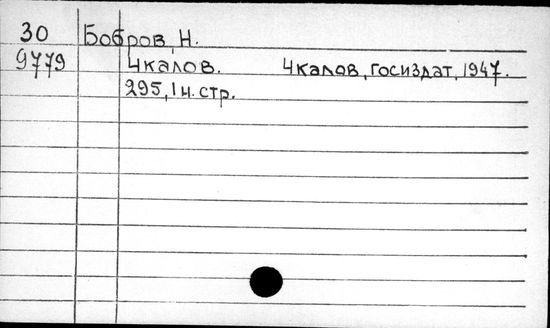 30 Бобров, Н.
9779 Чкалов. Чкалов, Госиздат, 1947.
295, 1 н. стр.